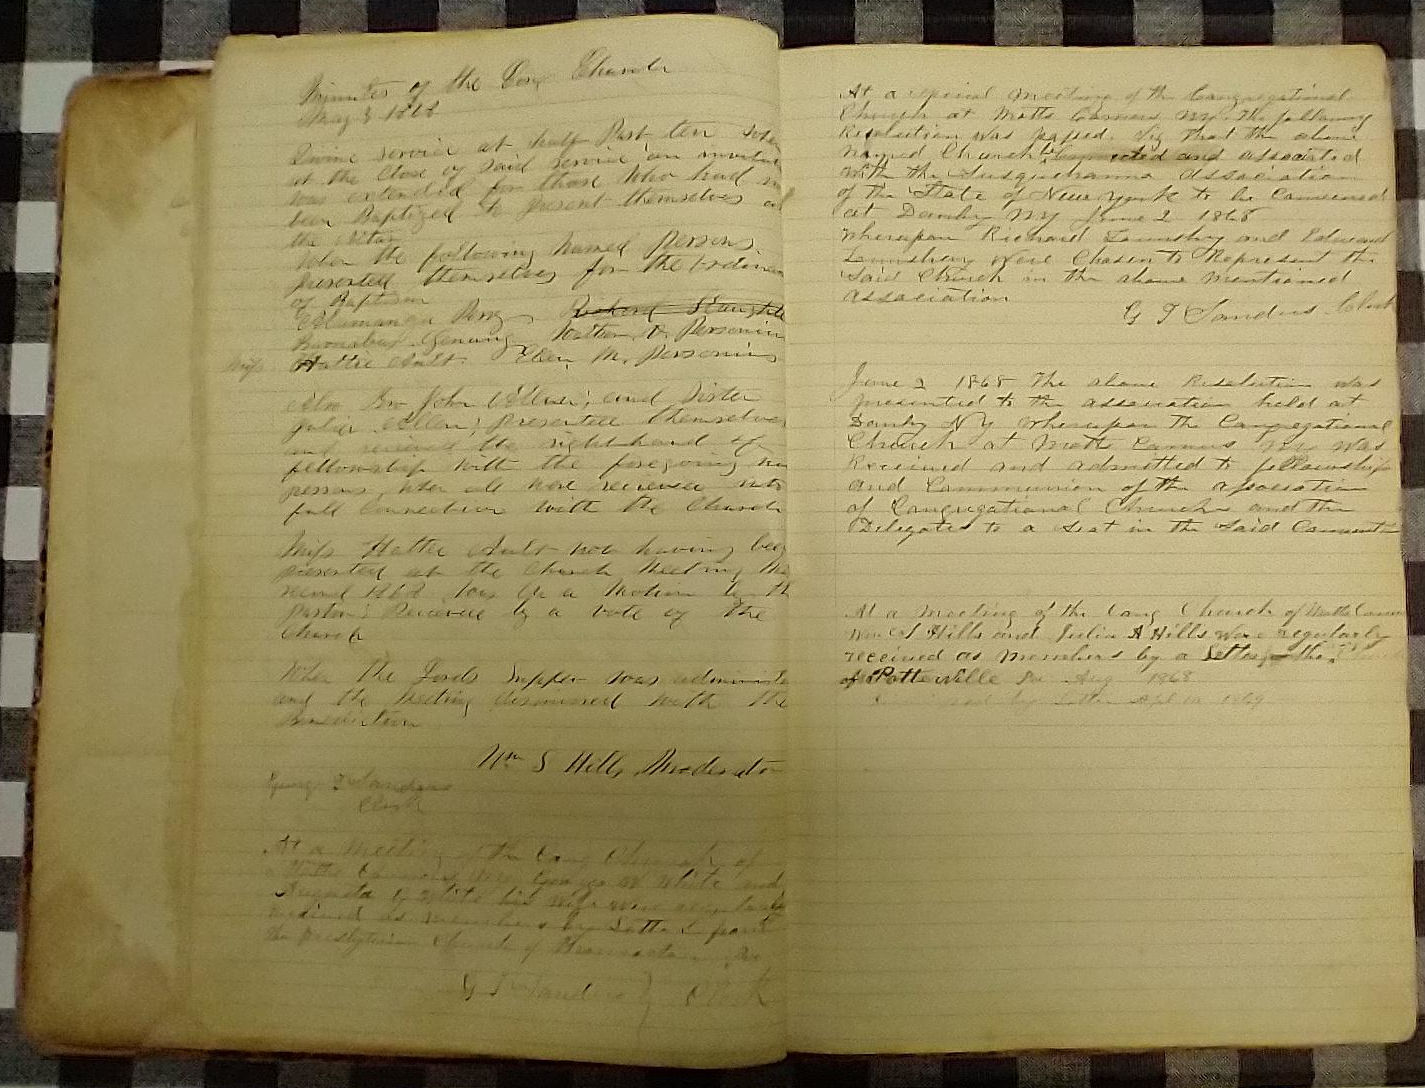 Minutes of the Cong Church
May 3 1868
Divine service at half Past ten
at the Close of said service an
was extended for those Who had
been Baptized to present themselves
the Altar
When the following named persons
presented themselves for the
of Baptism
Richard
Miss Hattie Ault. M. Personius
Also Bro John and Sister
Julia Allen, presented themselves
and received the right hand of
fellowship with the foregoing
persons, when all were received into
full Connection with the Church
Miss Hattie Ault not having been
presented at the Church Meeting
1868 was by a Motion by the
Pastor; Received by a vote of the
Church
When The Lords Supper was
and the Meeting dismissed with the
Benediction
Wm S Hills Moderator
George T Sanders
Clerk
At a Meeting of the Cong Church of
George W White and
White his wife were regularly
received as members by Letter from
the Presbyterian Church of
G T Sanders Clerk
At a special Meeting of the Congregational
Church at Motts Corners NY. the following
Resolution was passed. Viz that the above
named Church be connected and associated
with the Susquehanna association
of the State of New York to be Convened
at Danby NY June 2 1868
Whereupon Richard Lounsbery and Edward
Lounsbery were Chosen to Represent the
Said Church in the above mentioned
association
G T Sanders Clerk
June 2 1868 The above Resolution was
presented to the association held at
Danby N Y Whereupon the Congregational
Church at Motts Corners NY was
Received and admitted to fellowship
and Communion of the association
of Congregational Church and the
Delegates to a Seat in the Said
At a Meeting of the Cong Church of Motts
Wm S Hills and Julia A Hills were regularly
received as members by a Letter the
of Potterville Aug 1868
by Letter 1869